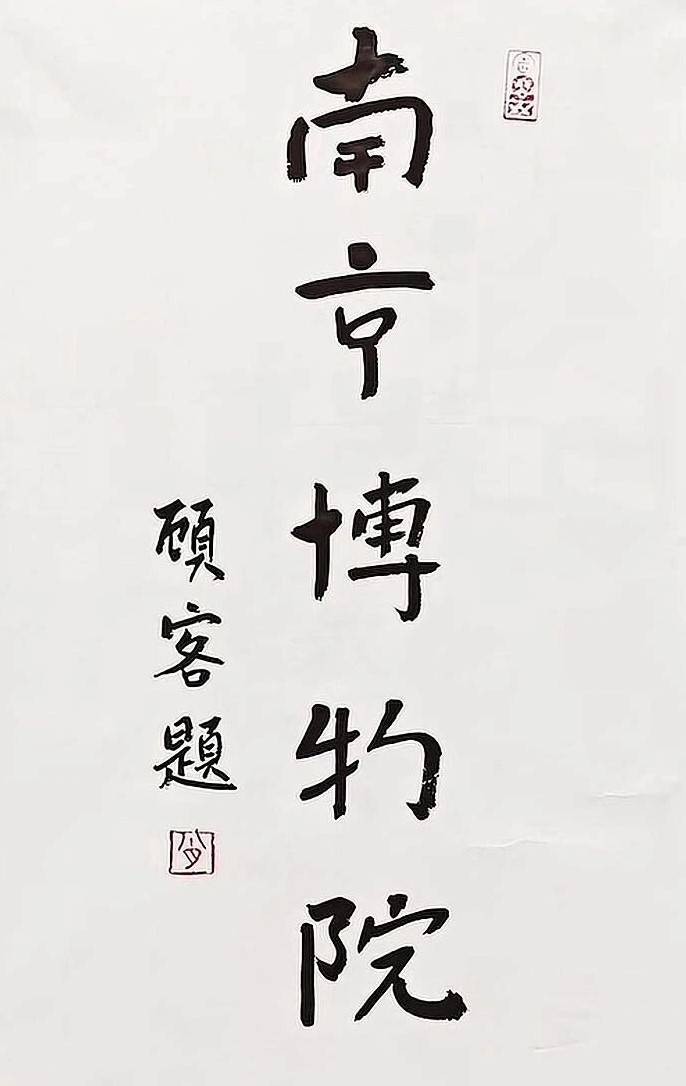 南京博物院
頋客題